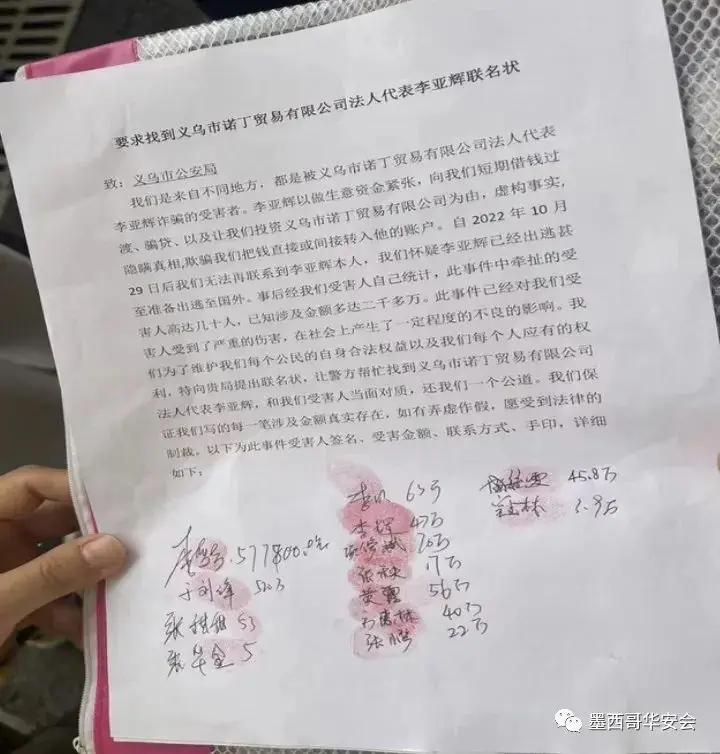 要求找到义乌市诺丁贸易有限公司法人代表李亚辉联名状
致：义乌市公安局
我们是来自不同地方，都是被义乌市诺丁贸易有限公司法人代表
李亚辉诈骗的受害者。李亚辉以做生意资金紧张，向我们短期借钱过
渡、骗贷、以及让我们投资义乌市诺丁贸易有限公司为由，虚构事实，
隐瞒真相,欺骗我们把钱直接或间接转入他的账户。自 2022 年 10 月
29 日后我们无法再联系到李亚辉本人，我们怀疑李亚辉已经出逃甚
至准备出逃至国外。事后经我们受害人自己统计，此事件中牵扯的受
害人高达几十人，已知涉及金额多达二千多万。此事件已经对我们受
害人受到了严重的伤害，在社会上产生了一定程度的不良的影响。我
们为了维护我们每个公民的自身合法权益以及我们每个人应有的权
利，特向贵局提出联名状，让警方帮忙找到义乌市诺丁贸易有限公司
法人代表李亚辉，和我们受害人当面对质，还我们一个公道。我们保
证我们写的每一笔涉及金额真实存在，如有弄虚作假，愿受到法律的
制裁。以下为此事件受害人签名、受害金额、联系方式、手印，详细
如下：
577800.
于刘峰
张
张华金 5
63万
李辉 47万
70万
17万
56万
40万
张 22万
45.8万
林
墨西哥华安会